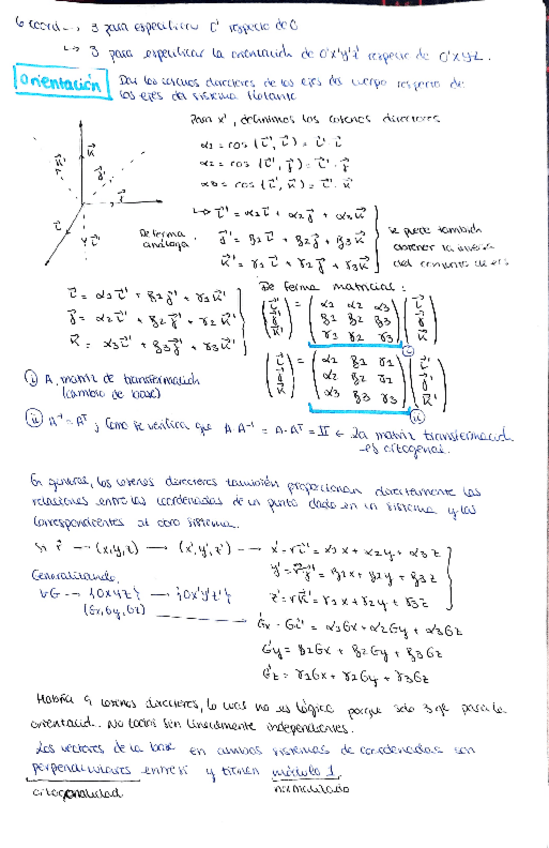 6 coord --> 3 para especificar O' respecto de O
↳ 3 para especificar la orientación de O'x'y'z' respecto de O'xyz.
Orientación Dar los cosenos directores de los ejes del cuerpo respecto de
los ejes del sistema flotante
Para x', definimos los cosenos directores
α1 = cos (i⃗', i⃗) = i⃗'·i⃗
α2 = cos (i⃗', j⃗) = i⃗'·j⃗
α3 = cos (i⃗', k⃗) = i⃗'·k⃗
k⃗' k⃗ j⃗' j⃗ i⃗ i⃗'
↳ i⃗' = α1 i⃗ + α2 j⃗ + α3 k⃗
De forma análoga. j⃗' = β1 i⃗ + β2 j⃗ + β3 k⃗
k⃗' = γ1 i⃗ + γ2 j⃗ + γ3 k⃗
se puede también
obtener la inversa
del conjunto
i⃗ = α1 i⃗' + β1 j⃗' + γ1 k⃗'
j⃗ = α2 i⃗' + β2 j⃗' + γ2 k⃗'
k⃗ = α3 i⃗' + β3 j⃗' + γ3 k⃗'
De forma matricial:
(i⃗' j⃗' k⃗') = (α1 α2 α3 / β1 β2 β3 / γ1 γ2 γ3) (i⃗ j⃗ k⃗)
i
(i⃗ j⃗ k⃗) = (α1 β1 γ1 / α2 β2 γ2 / α3 β3 γ3) (i⃗' j⃗' k⃗')
ii
i A, matriz de transformación
(cambio de base)
ii A⁻¹ = Aᵀ ; Como se verifica que A A⁻¹ = A·Aᵀ = II ← La matriz transformación
es ortogonal.
En general, los cosenos directores también proporcionan directamente las
relaciones entre las coordenadas de un punto dado en un sistema y las
correspondientes al otro sistema.
Si r⃗ --> (x,y,z) → (x',y',z') --> x' = r⃗ i⃗' = α1x + α2y + α3z
y' = r⃗ j⃗' = β1x + β2y + β3z
z' = r⃗ k⃗' = γ1x + γ2y + γ3z
Generalizando,
∀G --> {Oxyz} → {Ox'y'z'}
(Gx,Gy,Gz) --> G'x = G i⃗' = α1Gx + α2Gy + α3Gz
G'y = β1Gx + β2Gy + β3Gz
G'z = γ1Gx + γ2Gy + γ3Gz
Habría 9 cosenos directores, lo cual no es lógico porque solo 3 para la
orientación. No todos son linealmente independientes.
Los vectores de la base en ambos sistemas de coordenadas son
perpendiculares entre sí y tienen módulo 1
ortogonalidad normalizado